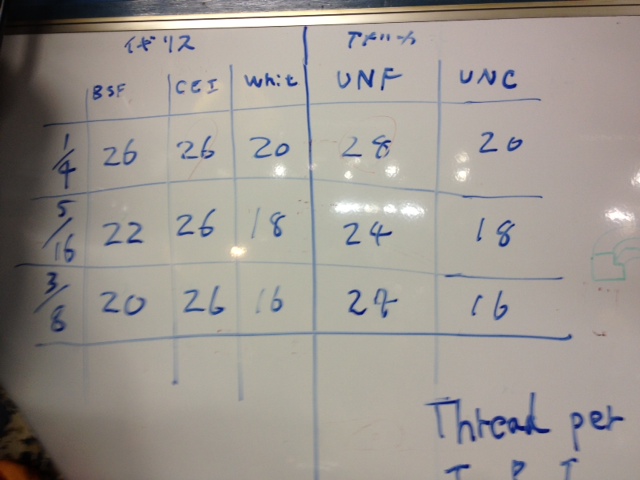 イギリス アメリカ
BSF CEI Whit UNF UNC
1/4 26 26 20 28 20
5/16 22 26 18 24 18
3/8 20 26 16 24 16
Thread per
T P I